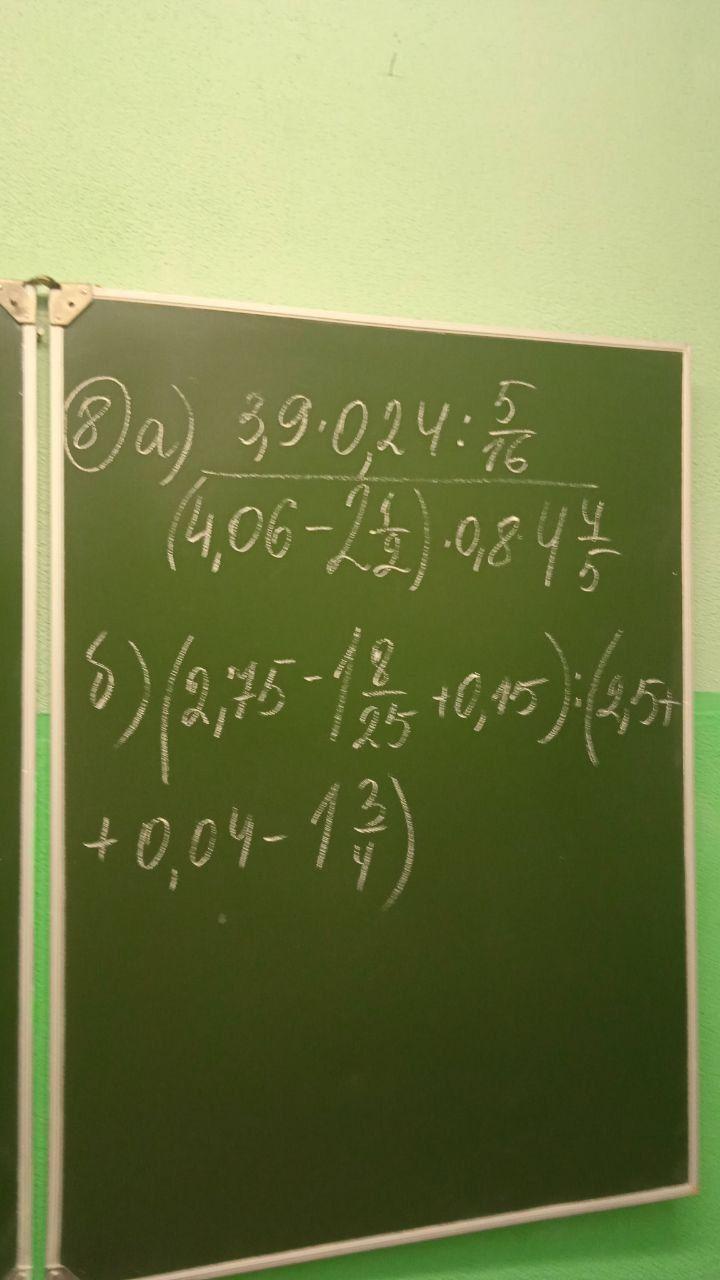 8 а) 3,9·0,24 : 5/16
(4,06 - 2 1/2) · 0,8 · 4 4/5
б) (2,75 - 1 8/25 + 0,15) : (2,5 +
+ 0,04 - 1 3/4)